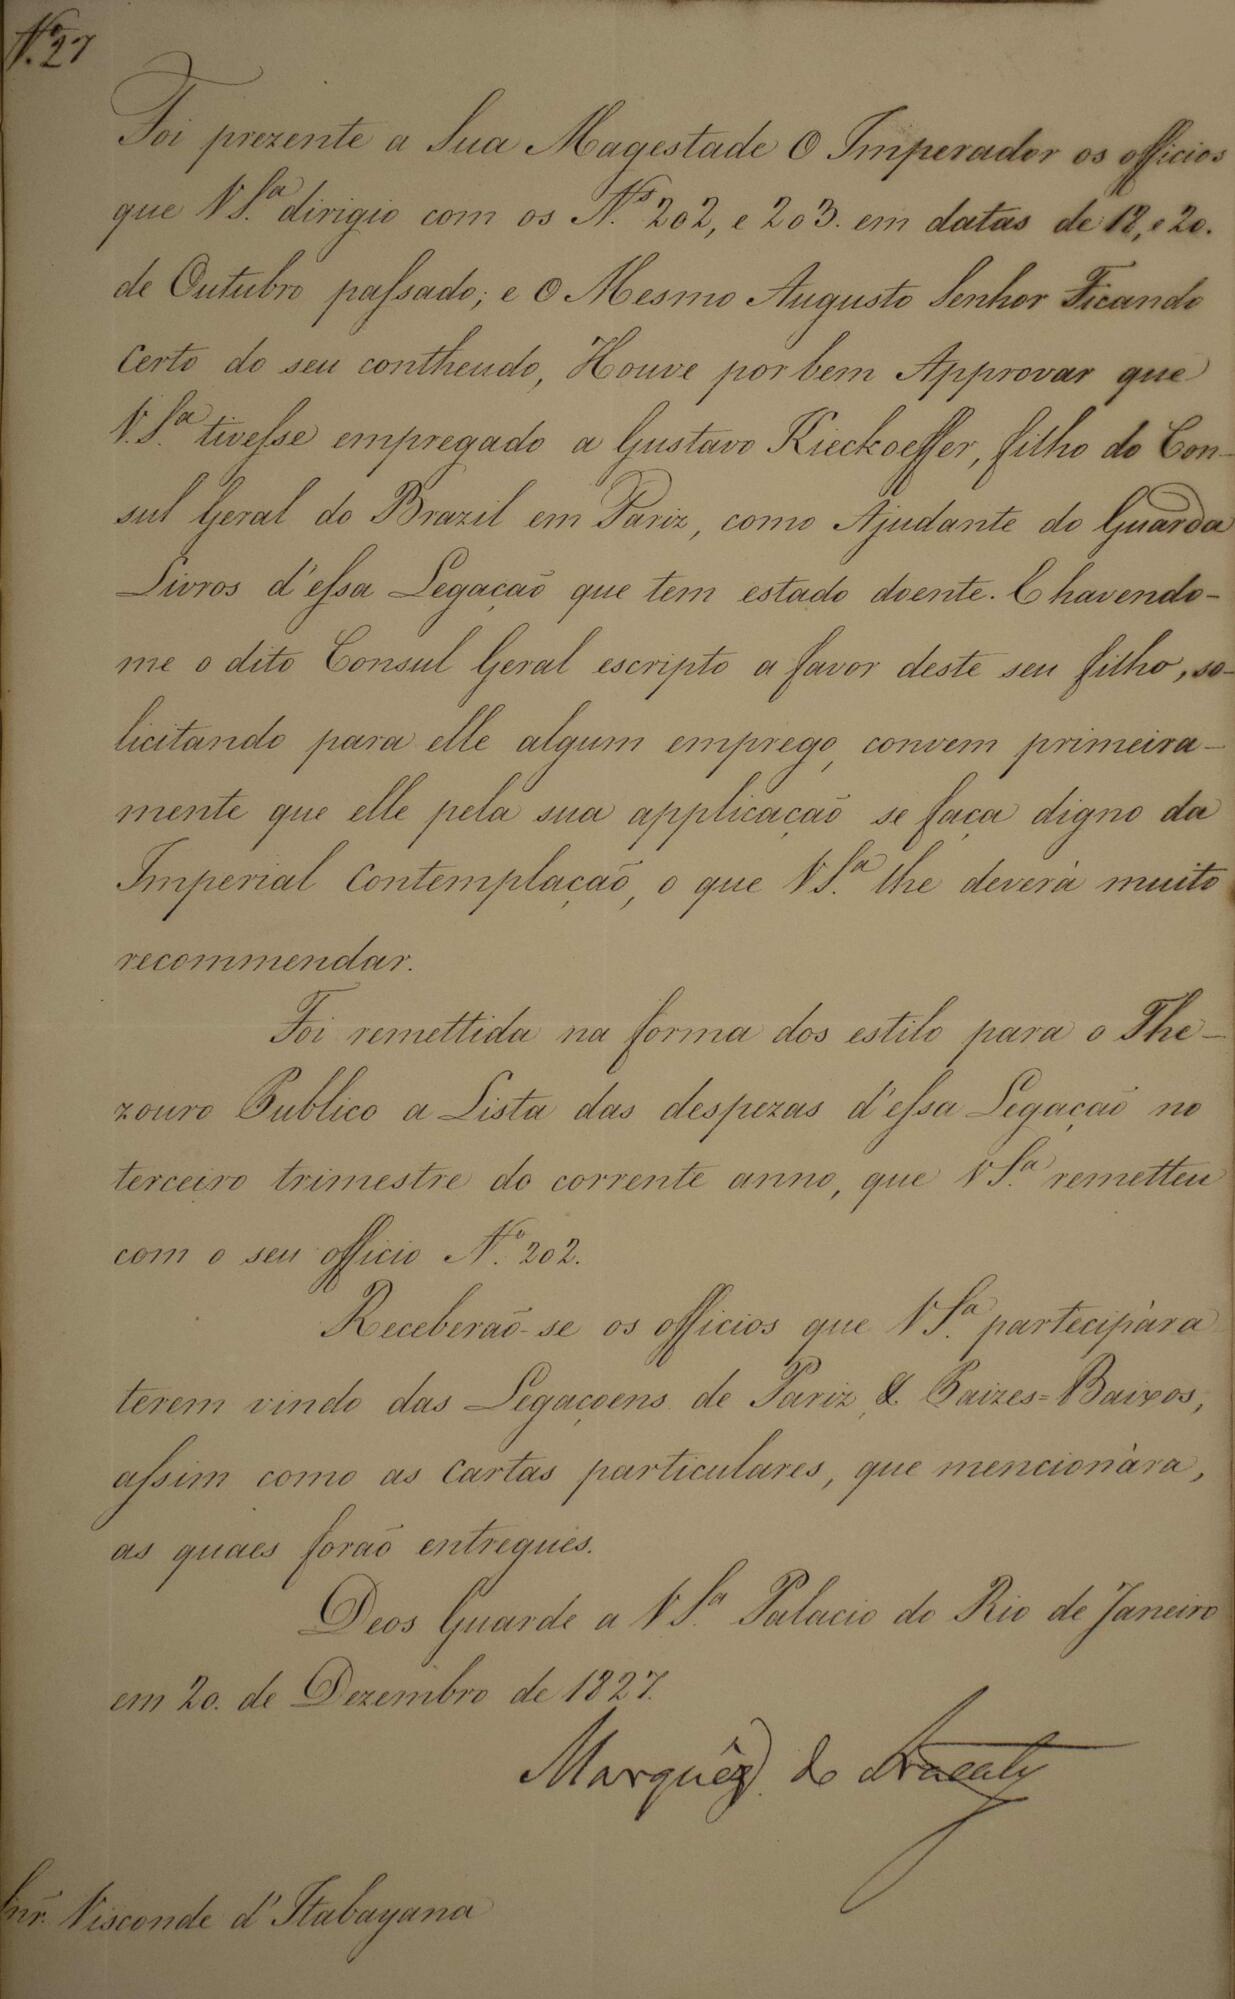 Nº 27
Foi prezente a Sua Magestade O Imperador os officios
que V S.ª dirigio com os N.ºs 202, e 203. em datas de 12, e 20.
de Outubro passado; e O Mesmo Augusto Senhor Ficando
Certo do seu contheudo, Houve por bem Approvar que
V. S.ª tivesse empregado a Gustavo Kieckoeffer, filho do Con-
sul Geral do Brazil em Pariz, como Ajudante do Guarda
Livros d'essa Legação que tem estado doente. E havendo-
me o dito Consul Geral escripto a favor deste seu filho, so-
licitando para elle algum emprego, convem primeira-
mente que elle pela sua applicação se faça digno da
Imperial Contemplação, o que V S.ª lhe deverá muito
recommendar.
Foi remettida na forma dos estilo para o The-
zouro Publico a Lista das despezas d'essa Legação no
terceiro trimestre do corrente anno, que V S.ª remetteu
com o seu officio N.º 202.
Receberaõ-se os officios que V S.ª partecipàra
terem vindo das Legaçoens de Pariz, & Paizes=Baixos,
assim como as Cartas particulares, que mencionàra,
as quaes foraõ entregues.
Deos Guarde a V S.ª Palacio do Rio de Janeiro
em 20. de Dezembro de 1827.
Marquêz de Aracaty
Snr. Visconde d'Itabayana